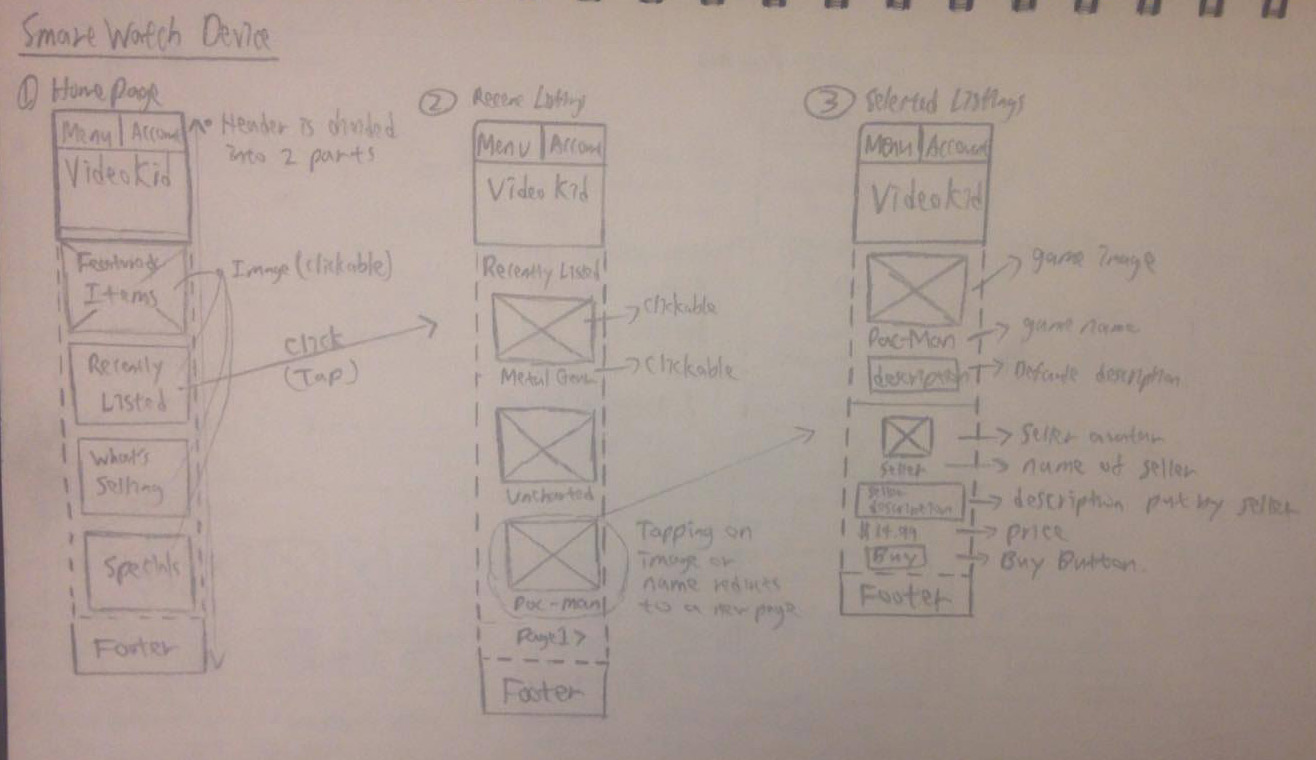 Smart Watch Device
① Home Page
Menu | Account
Header is divided
into 2 parts
VideoKid
Featured
Items
Image (clickable)
Recently
Listed
Click
(Tap)
What's
Selling
Specials
Footer
② Recent Listing
Menu | Account
Video Kid
Recently Listed
clickable
Metal Gear
clickable
Uncharted
Tapping on
image or
name
to a new page
Pac-man
Page 1 >
Footer
③ Selected Listings
Menu | Account
VideoKid
game image
Pac-Man
game name
description
Default description
Seller avatar
Seller
name of seller
seller
description
description put by seller
$14.99
price
Buy
Buy Button.
Footer